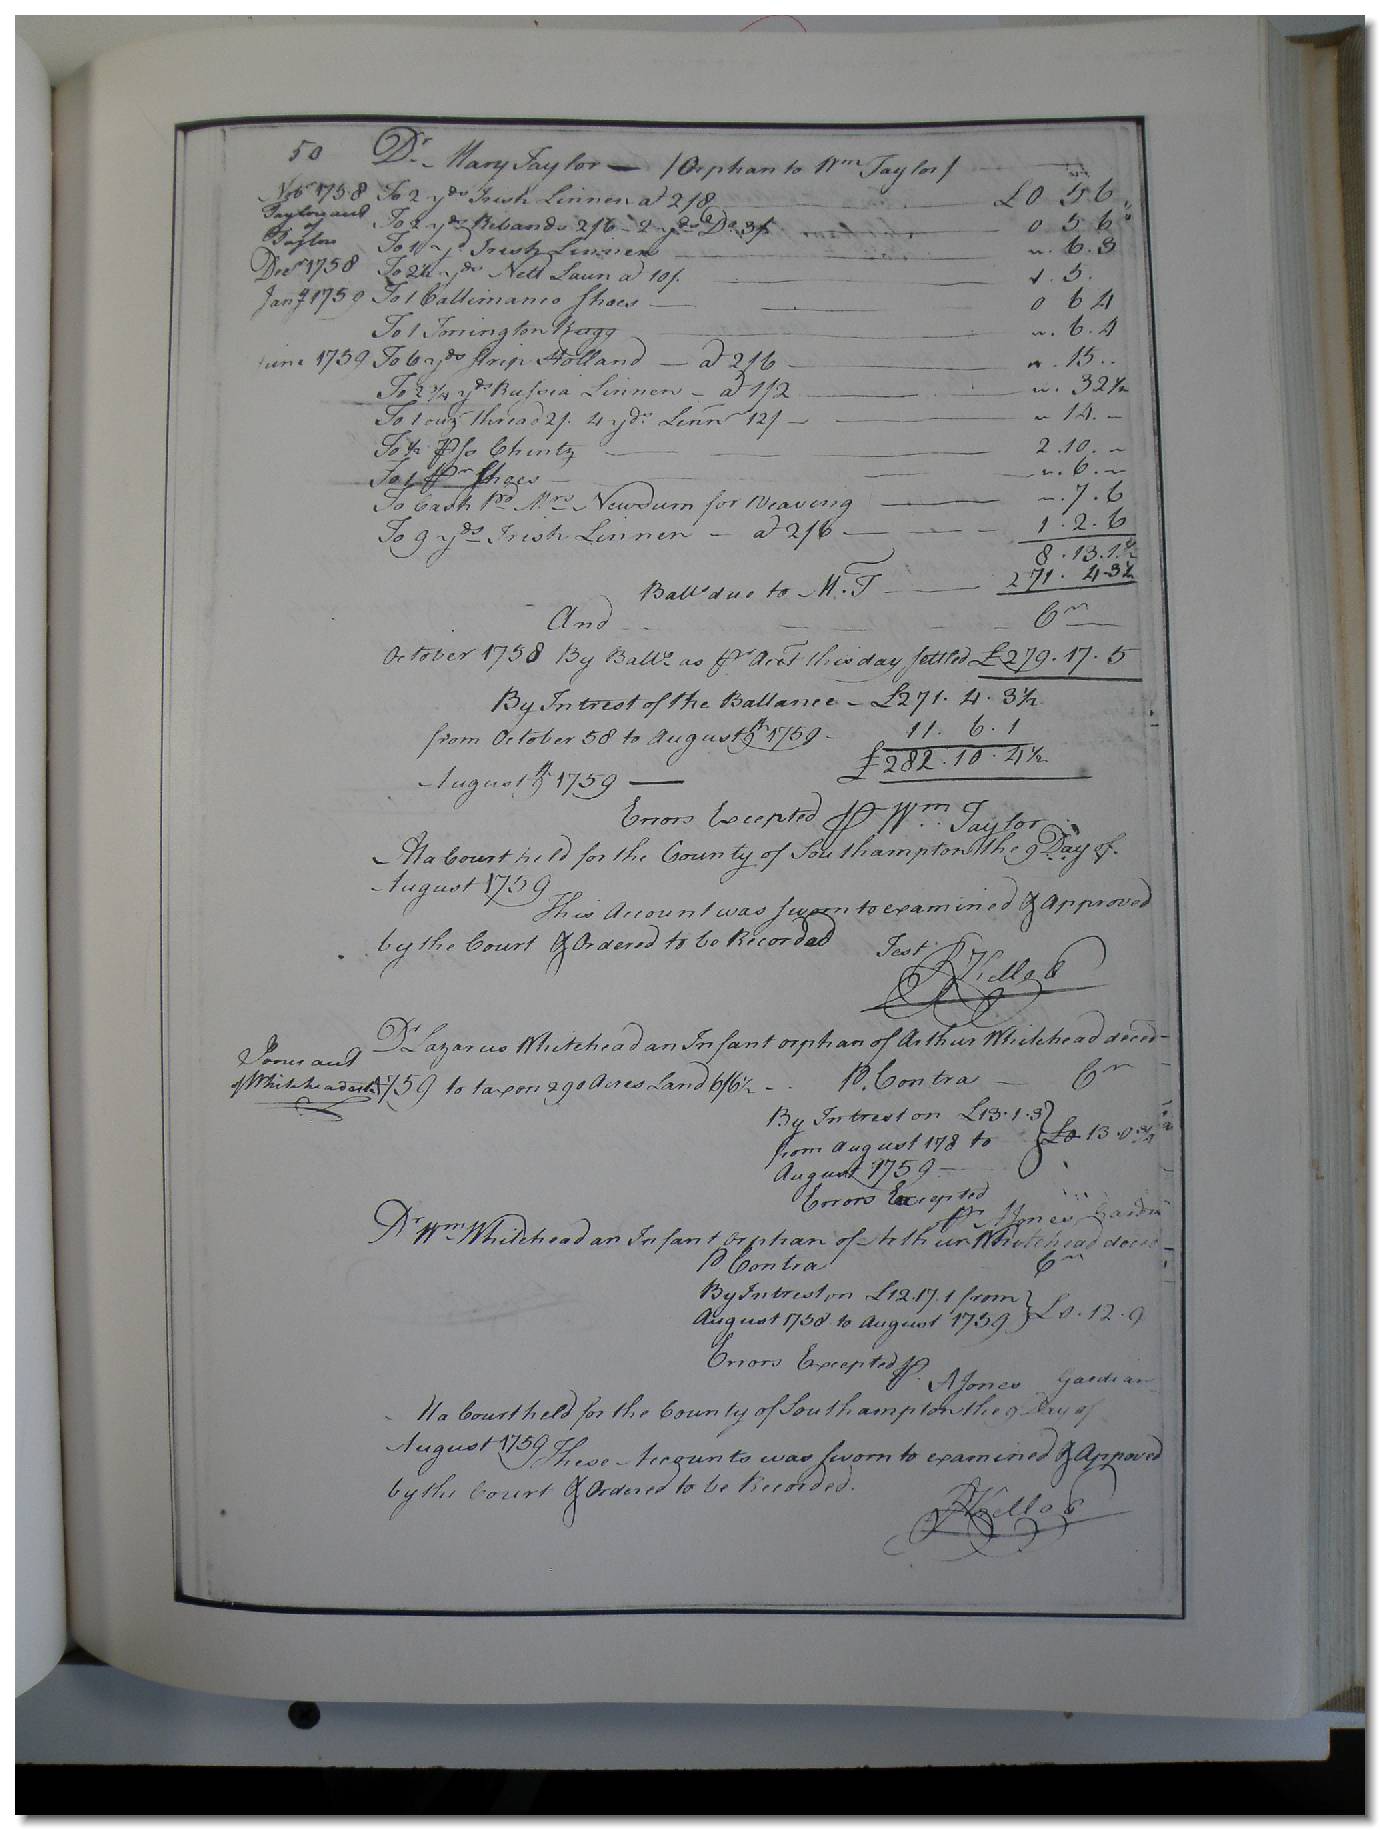 50 Dr. Mary Taylor — /Orphan to Wm Taylor/
Nobr 1758 To 2 yds Irish Linnen at 2/8 £0 5 6
Taylors act
of
Taylor
To 2 yds Ribands 2/6 - 2 yds Do 3/ 0 5 6
To 1 yd Irish Linnen ". 6. 3
Decr 1758 To 2½ yds Nett Laun at 10/. 1. 5.
Jany 1759 To 1 Callimanco Shoes — 0 6 4
To 1 Torrington Rugg ". 6. 4
June 1759 To 6 yds Strip Holland — at 2/6 ". 15..
To 2¾ yds Russia Linnen - at 1/2 ". 3 2½
To 1 ouz thread 2/. 4 yds Linn 12/ — " 14. -
To ½ Ps Chintz 2. 10. "
To 1 Pr Shoes — ". 6. "
To Cash Pd Mrs Newsum for Weaving ". 7. 6
To 9 yds Irish Linnen — at 2/6 — 1. 2. 6
8. 13. 1½
Balle due to M. T 271. 4. 3½
And Cr
October 1758 By Balle as Pr Acct this day settled £279. 17. 5
By Intrest of the Ballance - £271. 4. 3½
from October 58 to August 9th 1759 - 11. 6. 1
August 9th 1759 — £282. 10. 4½
Errors Excepted Pr Wm Taylor
At a Court held for the County of Southampton the 9 Day of
August 1759
This Account was sworn to examined & Approved
by the Court & Ordered to be Recorded Test
R Kello C
Dr Lazarus Whitehead an Infant orphan of Arthur Whitehead deced
Jones act
of Whiteheads 1759 to tax on 290 Acres Land 6/6½ - P. Contra — Cr
By Intrest on £13. 1. 3
from August 178 to £0 13. 0¾
August 1759 —
Errors Excepted
Pr AJones Gardin
Dr Wm Whitehead an Infant Orphan of Arthur Whitehead deced
P Contra Cr
By Intrest on £12. 17. 1 from
August 1758 to August 1759 £0. 12. 9
Errors Excepted Pr.
AJones Gardian
At a Court held for the County of Southampton the 9 Day of
August 1759 These Accounts was sworn to examined & Appoved
by the Court & Ordered to be Recorded.
R Kello C